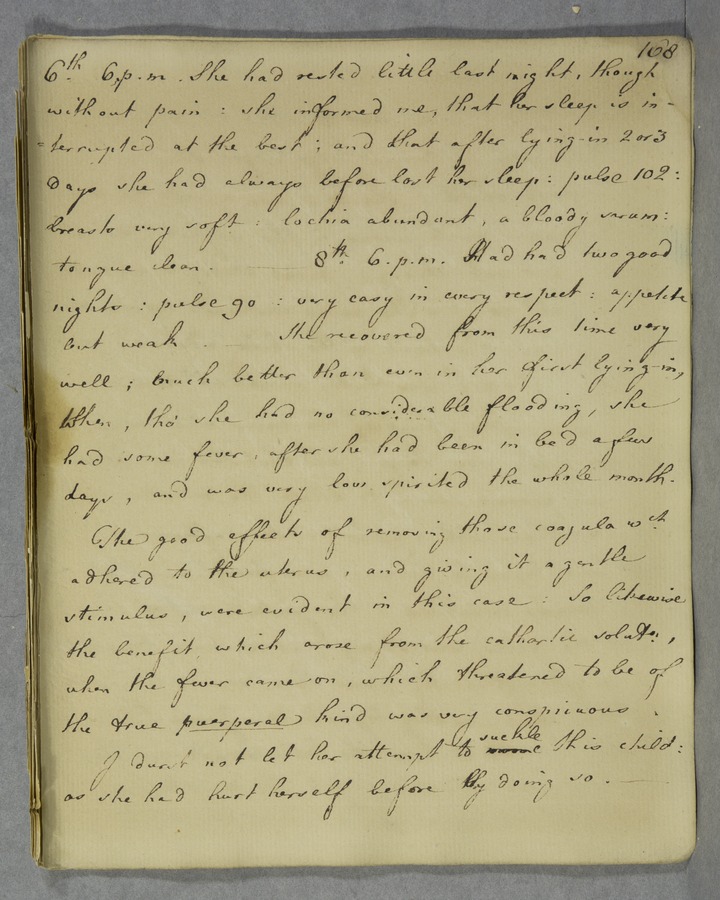 168
6th. 6,p.m. She had rested little last night, though
without pain : she informed me, that her sleep is in-
-terrupted at the best ; and that after lying-in 2 or 3
days she had always before lost her sleep: pulse 102:
breasts very soft : lochia abundant, a bloody serum:
tongue clean. —— 8th. 6.p.m. Had had two good
nights : pulse 90 : very easy in every respect : appetite
but weak . —— She recovered from this time very
well ; much better than even in her first lying-in,
When, tho' she had no considerable flooding, she
had some fever, after she had been in bed a few
days, and was very low spirited the whole month.
The good effects of removing those coagula wch.
adhered to the uterus, and giving it a gentle
stimulus, were evident in this case : So likewise
the benefit, which arose from the cathartic solutn.,
when the fever came on, which threatened to be of
the true puerperal kind was very conspicuous .
I durst not let her attempt to suckle this child:
as she had hurt herself before by doing so. ——